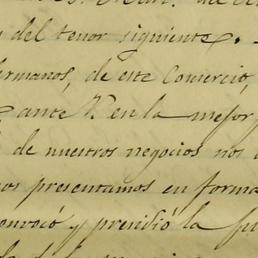 del tenor siguiente.
ermanos, de este Comercio,
ante V. en la mejor
de nuestros negocios nos
nos presentamos en forma
onvocó y presidió la